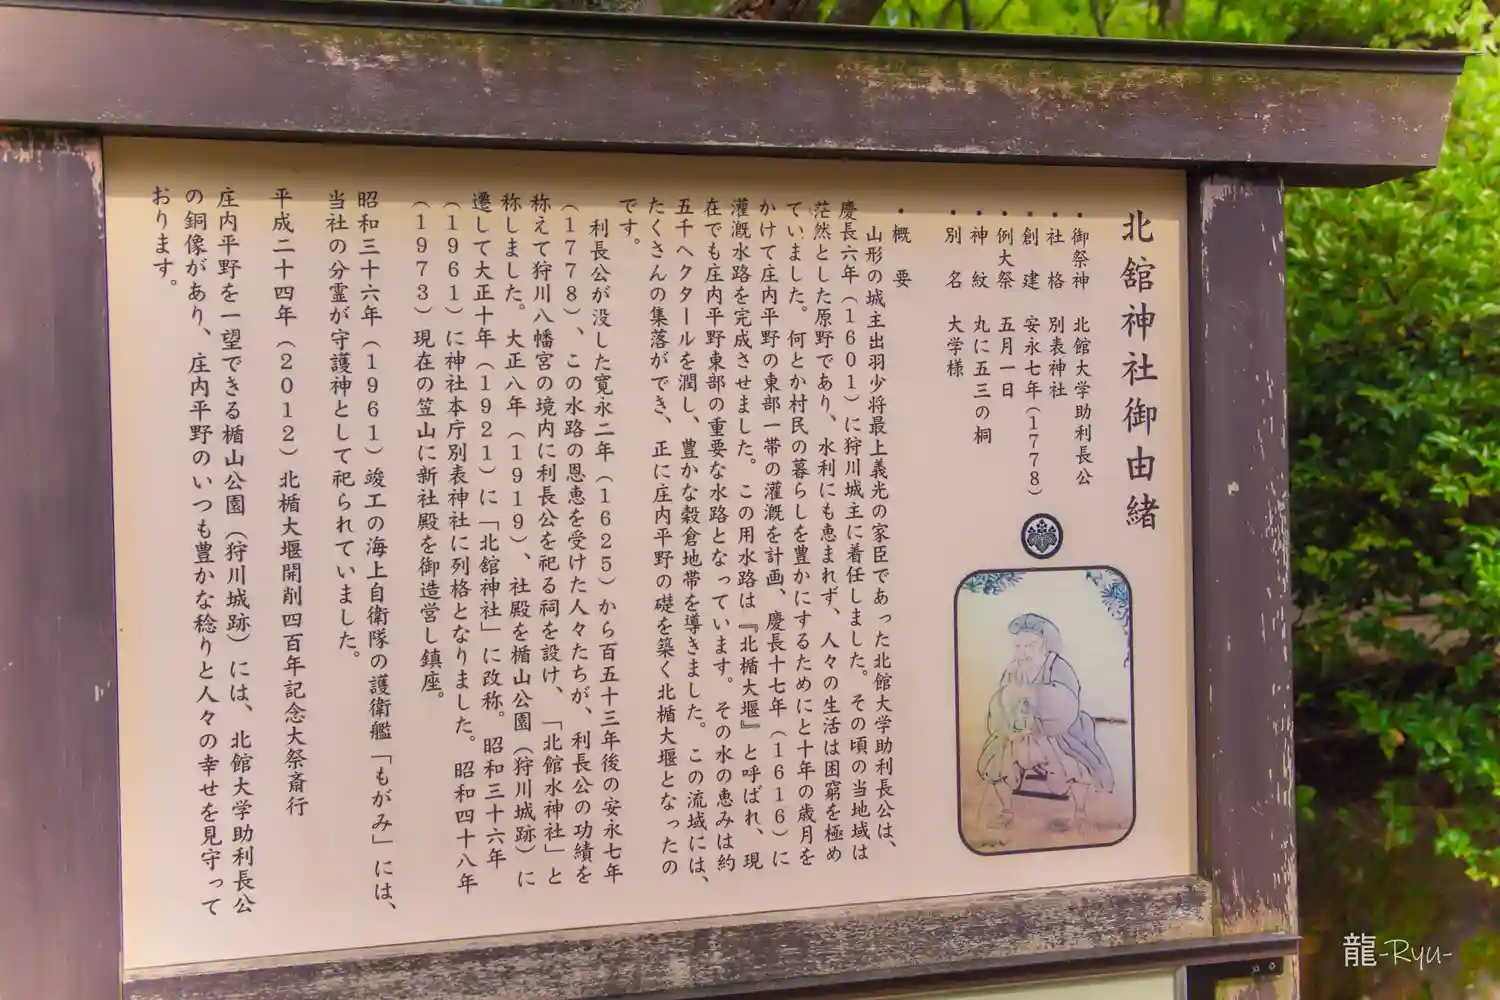 北舘神社御由緒
・御祭神　北館大学助利長公
・社　格　別表神社
・創　建　安永七年（1778）
・例大祭　五月一日
・神　紋　丸に五三の桐
・別　名　大学様
・概　要
山形の城主出羽少将最上義光の家臣であった北館大学助利長公は、
慶長六年（1601）に狩川城主に着任しました。その頃の当地域は
茫然とした原野であり、水利にも恵まれず、人々の生活は困窮を極め
ていました。何とか村民の暮らしを豊かにするためにと十年の歳月を
かけて庄内平野の東部一帯の灌漑を計画、慶長十七年（1616）に
灌漑水路を完成させました。この用水路は『北楯大堰』と呼ばれ、現
在でも庄内平野東部の重要な水路となっています。その水の恵みは約
五千ヘクタールを潤し、豊かな穀倉地帯を導きました。この流域には、
たくさんの集落ができ、正に庄内平野の礎を築く北楯大堰となったの
です。
利長公が没した寛永二年（1625）から百五十三年後の安永七年
（1778）、この水路の恩恵を受けた人々たちが、利長公の功績を
称えて狩川八幡宮の境内に利長公を祀る祠を設け、「北館水神社」と
称しました。大正八年（1919）、社殿を楯山公園（狩川城跡）に
遷して大正十年（1921）に「北舘神社」に改称。昭和三十六年
（1961）に神社本庁別表神社に列格となりました。昭和四十八年
（1973）現在の笠山に新社殿を御造営し鎮座。
昭和三十六年（1961）竣工の海上自衛隊の護衛艦「もがみ」には、
当社の分霊が守護神として祀られていました。
平成二十四年（2012）北楯大堰開削四百年記念大祭斎行
庄内平野を一望できる楯山公園（狩川城跡）には、北館大学助利長公
の銅像があり、庄内平野のいつも豊かな稔りと人々の幸せを見守って
おります。
龍-Ryu-